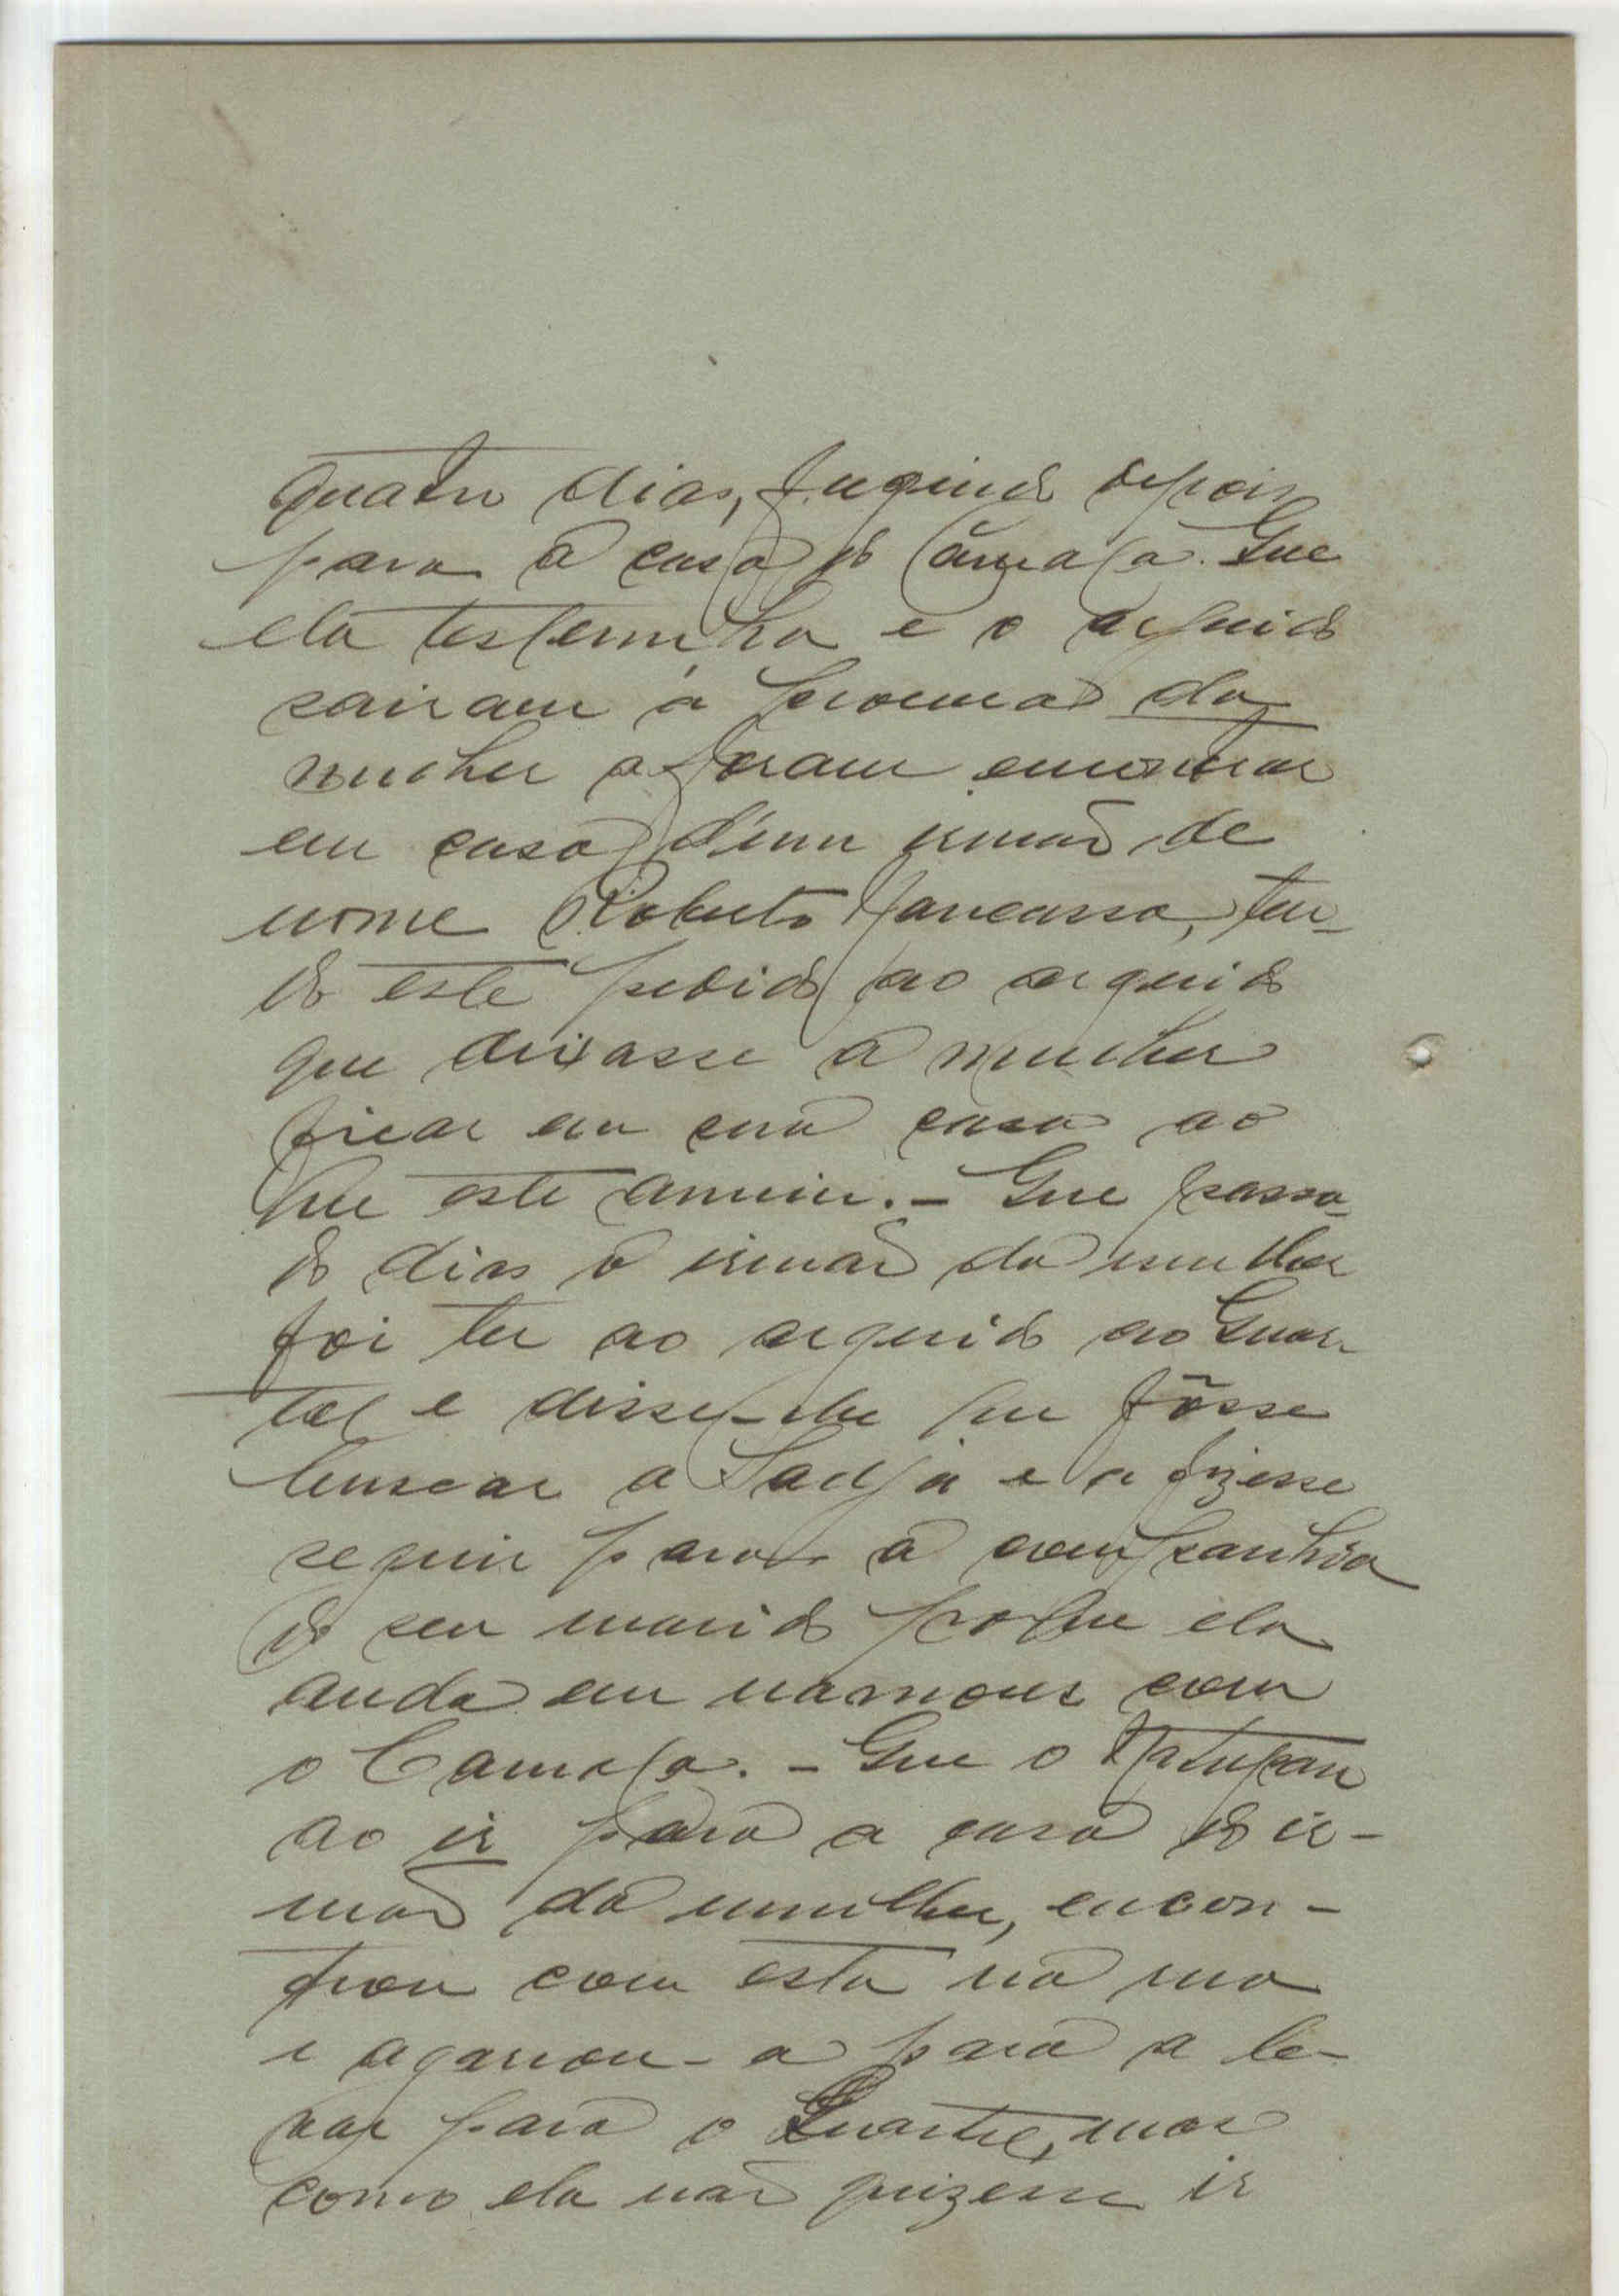 quatro dias, fugindo depois
para a casa do Câmala. Que
ela testemunha e o arguido
sairam á procura da
mulher e foram encontrar
em casa d'um irmão de
nome Roberto, ten-
do este pedido ao arguido
que deixasse a mulher
ficar em sua casa ao
que este anuiu. - Que passa-
do dias o irmão da mulher
foi ter ao arguido ao Quar-
tel e disse-lhe que fôsse
buscar a Sadja e a fizesse
seguir para a companhia
do seu marido porque ela
anda em namoros com
o Camala. - Que o
ao ir para a casa do ir-
mão da mulher, encon-
trou com esta na rua
e agarrou-a para a le-
var para o Quartel, mas
como ela não quizesse ir